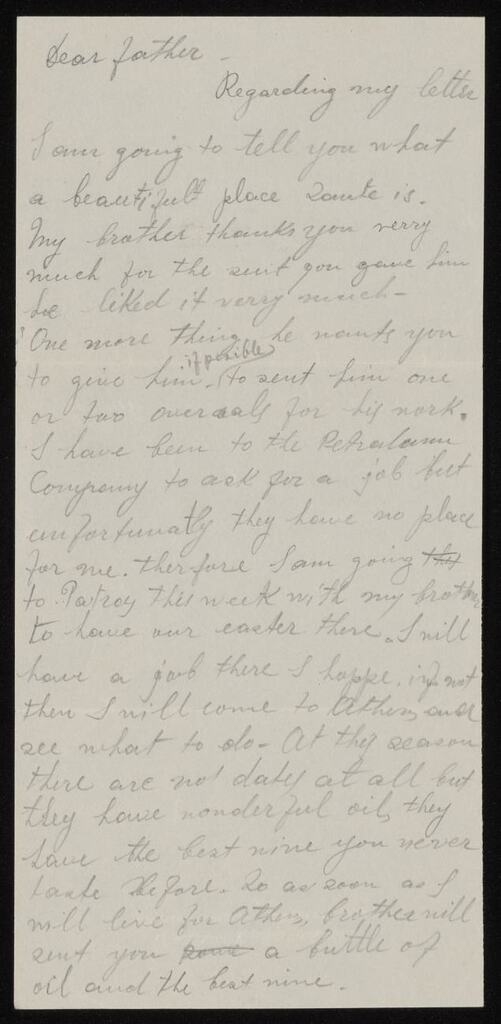 Dear father -
Regarding my letter
I am going to tell you what
a beautifull place Zante is.
My brother thanks you verry
much for the suit you gave him
he liked it verry much -
One more thing he wants you
if posible
to give him. To sent him one
or two overaals for his work.
I have been to the Petraloum
Company to ask for a job but
unfortunatly they have no place
for me. therfore I am going this
to Patras this week with my brother
to have our easter there. I will
have a job there I hoppe, if not
then I will come to Athens and
see what to do - At this season
there are not dates at all but
they have wonderful oil, they
have the best wine you never
taste before. So as soon as I
will live for Athens, brother will
sent you some a buttle of
oil and the best wine.